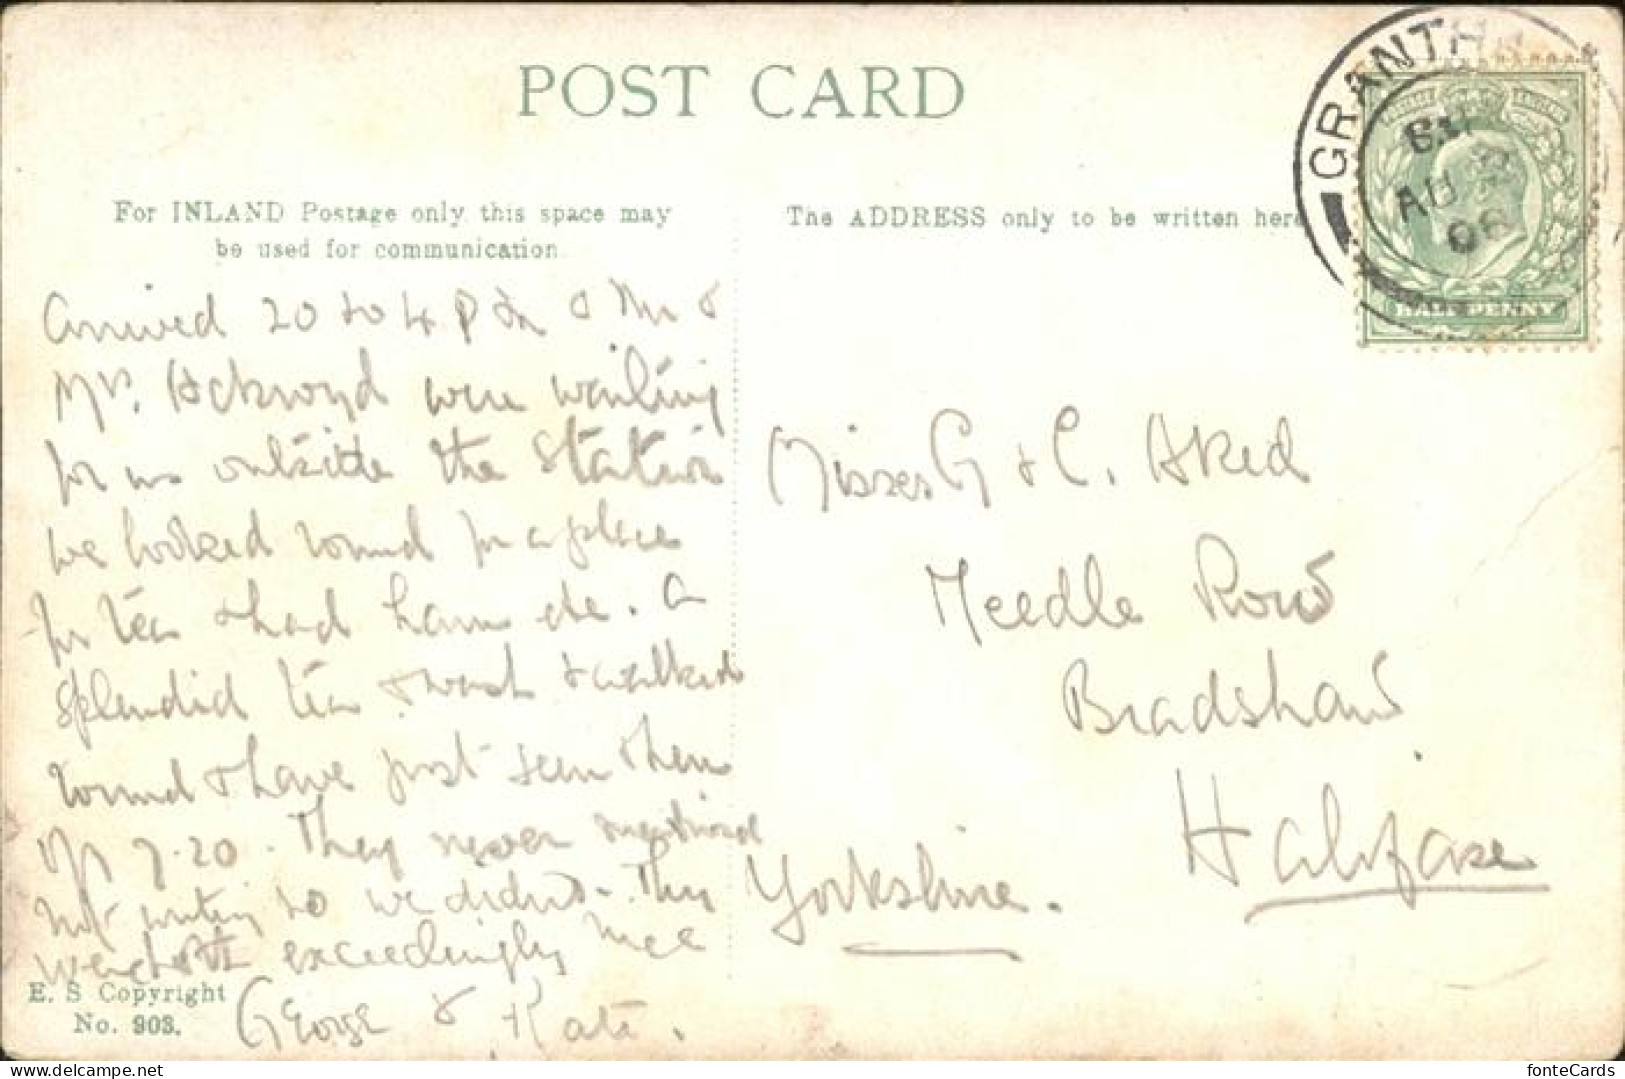 POST CARD
For INLAND Postage only this space may
be used for communication.
The ADDRESS only to be written here
GRANTH
AU
06
HALFPENNY
Arrived 20 to 4 P m & Mr &
Mrs. Ackroyd were waiting
for us outside the Station
we looked round for a place
for tea & had ham etc. a
splendid tea & wash & walked
round & have just seen them
off 7.20. They never mentioned
not writing so we didnt. They
were both exceedingly nice
George & Kate.
Misses G & C. Aked
Needle Row
Bradshaw
Halifax
Yorkshire.
E. S Copyright
No. 903.
delcampe.net
fonteCards